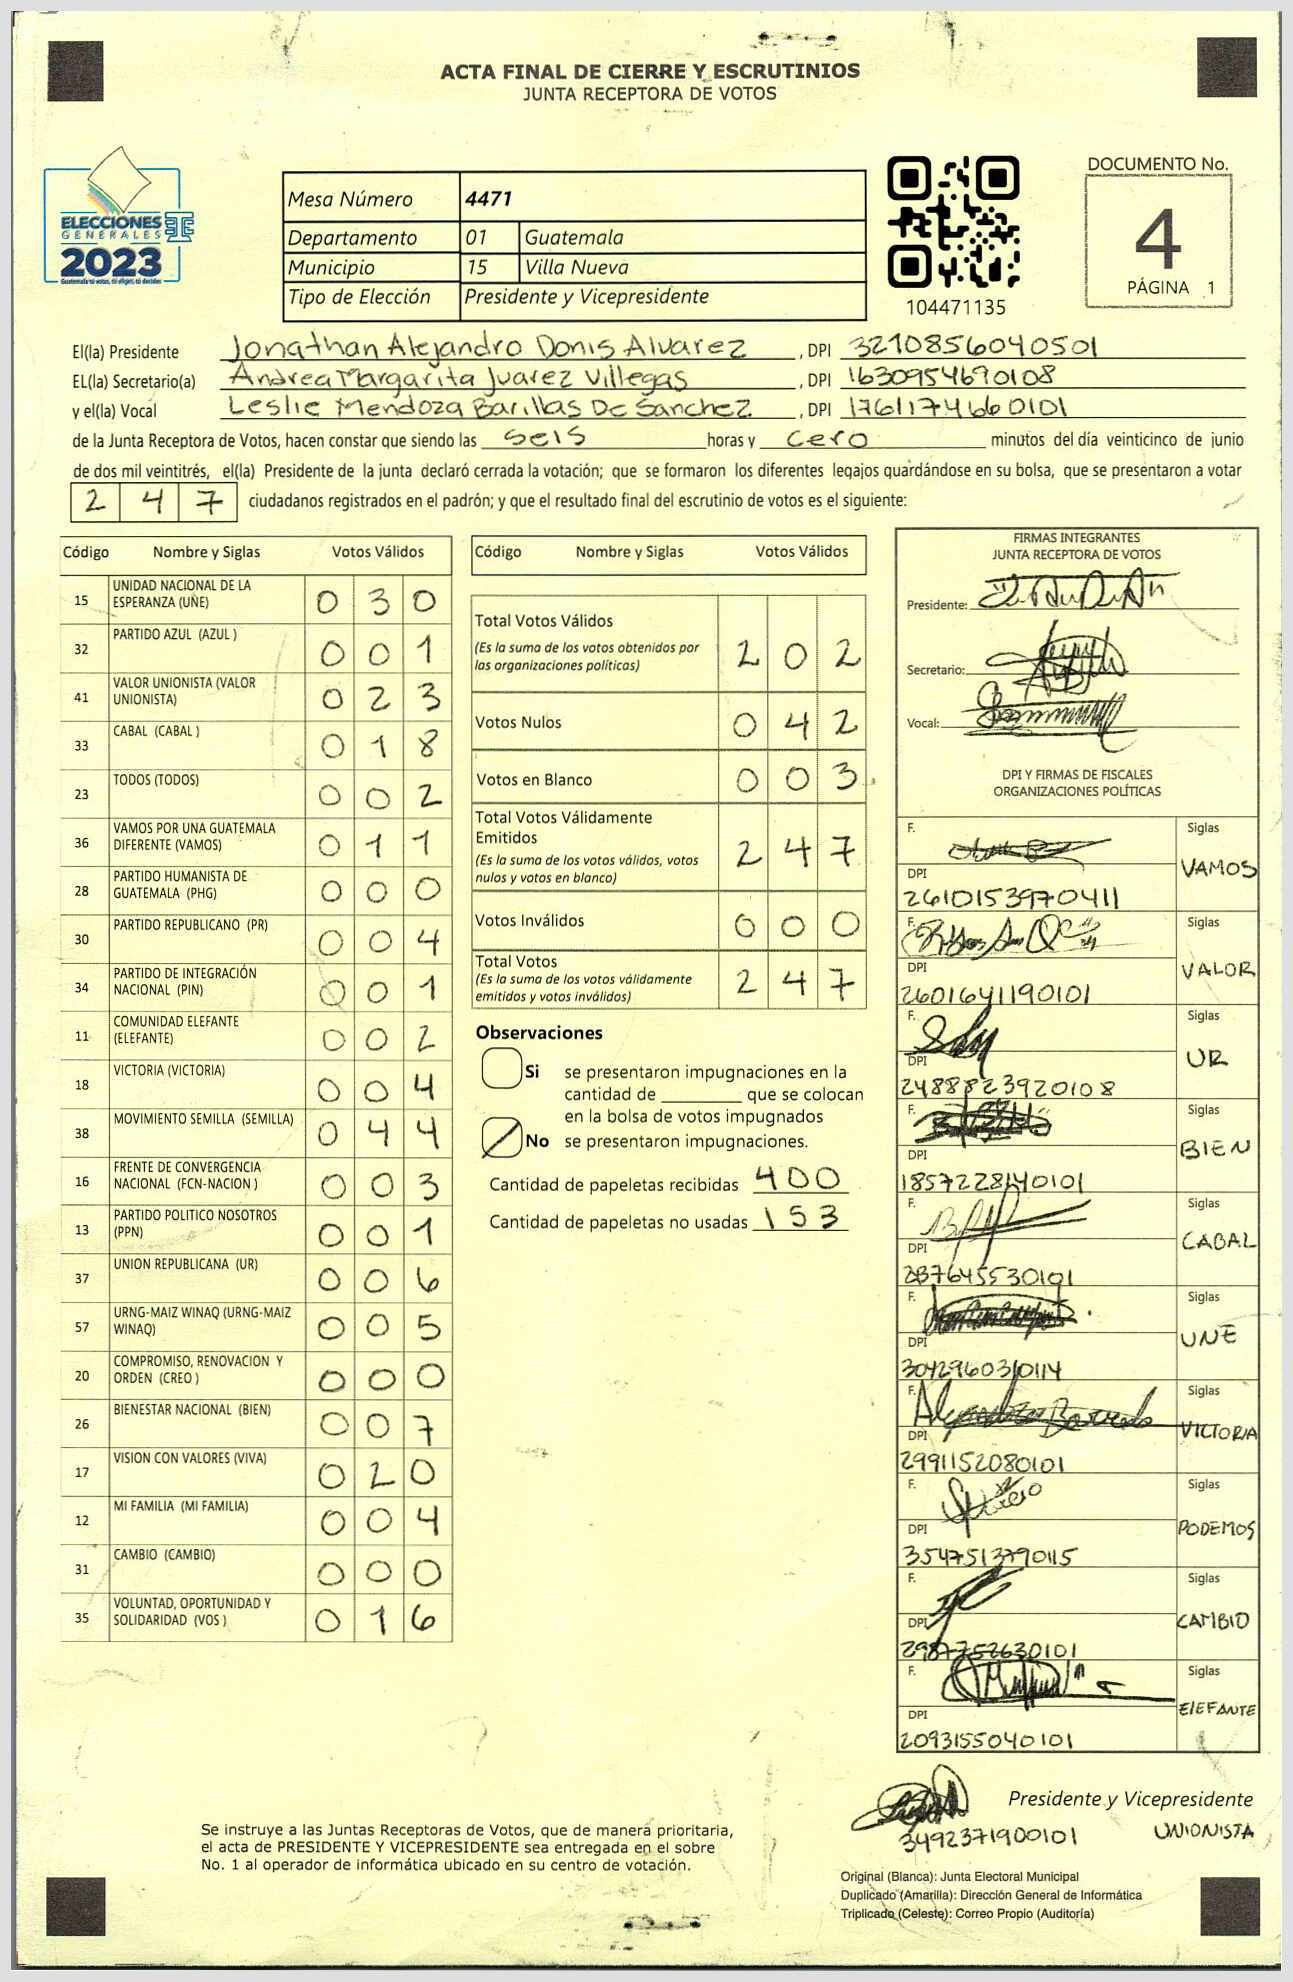 ACTA FINAL DE CIERRE Y ESCRUTINIOS
JUNTA RECEPTORA DE VOTOS
ELECCIONES
GENERALES
2023
Guatemala tú votas, tú eliges, tú decides
Mesa Número 4471
Departamento 01 Guatemala
Municipio 15 Villa Nueva
Tipo de Elección Presidente y Vicepresidente
104471135
DOCUMENTO No.
4
PÁGINA 1
El(la) Presidente Jonathan Alejandro Donis Alvarez , DPI 3210856040501
EL(la) Secretario(a) Andrea Margarita Juarez Villegas , DPI 1630954690108
y el(la) Vocal Leslie Mendoza Barillas De Sanchez , DPI 1761174660101
de la Junta Receptora de Votos, hacen constar que siendo las seis horas y cero minutos del día veinticinco de junio
de dos mil veintitrés, el(la) Presidente de la junta declaró cerrada la votación; que se formaron los diferentes legajos guardándose en su bolsa, que se presentaron a votar
2 4 7 ciudadanos registrados en el padrón; y que el resultado final del escrutinio de votos es el siguiente:
Código Nombre y Siglas Votos Válidos
15 UNIDAD NACIONAL DE LA ESPERANZA (UNE) 0 3 0
32 PARTIDO AZUL (AZUL ) 0 0 1
41 VALOR UNIONISTA (VALOR UNIONISTA) 0 2 3
33 CABAL (CABAL ) 0 1 8
23 TODOS (TODOS) 0 0 2
36 VAMOS POR UNA GUATEMALA DIFERENTE (VAMOS) 0 1 1
28 PARTIDO HUMANISTA DE GUATEMALA (PHG) 0 0 0
30 PARTIDO REPUBLICANO (PR) 0 0 4
34 PARTIDO DE INTEGRACIÓN NACIONAL (PIN) 0 0 1
11 COMUNIDAD ELEFANTE (ELEFANTE) 0 0 2
18 VICTORIA (VICTORIA) 0 0 4
38 MOVIMIENTO SEMILLA (SEMILLA) 0 4 4
16 FRENTE DE CONVERGENCIA NACIONAL (FCN-NACION ) 0 0 3
13 PARTIDO POLITICO NOSOTROS (PPN) 0 0 1
37 UNION REPUBLICANA (UR) 0 0 6
57 URNG-MAIZ WINAQ (URNG-MAIZ WINAQ) 0 0 5
20 COMPROMISO, RENOVACION Y ORDEN (CREO ) 0 0 0
26 BIENESTAR NACIONAL (BIEN) 0 0 7
17 VISION CON VALORES (VIVA) 0 2 0
12 MI FAMILIA (MI FAMILIA) 0 0 4
31 CAMBIO (CAMBIO) 0 0 0
35 VOLUNTAD, OPORTUNIDAD Y SOLIDARIDAD (VOS ) 0 1 6
Código Nombre y Siglas Votos Válidos
Total Votos Válidos 2 0 2
(Es la suma de los votos obtenidos por
las organizaciones políticas)
Votos Nulos 0 4 2
Votos en Blanco 0 0 3
Total Votos Válidamente
Emitidos 2 4 7
(Es la suma de los votos válidos, votos
nulos y votos en blanco)
Votos Inválidos 0 0 0
Total Votos 2 4 7
(Es la suma de los votos válidamente
emitidos y votos inválidos)
Observaciones
Si se presentaron impugnaciones en la
cantidad de ________ que se colocan
en la bolsa de votos impugnados
No se presentaron impugnaciones.
Cantidad de papeletas recibidas 400
Cantidad de papeletas no usadas 153
FIRMAS INTEGRANTES
JUNTA RECEPTORA DE VOTOS
Presidente:
Secretario:
Vocal:
DPI Y FIRMAS DE FISCALES
ORGANIZACIONES POLÍTICAS
F. Siglas
VAMOS
DPI
2610153970411
F. Siglas
VALOR
DPI
2601641190101
F. Siglas
UR
DPI
2488823920108
F. Siglas
BIEN
DPI
1857228140101
F. Siglas
CABAL
DPI
237645530101
F. Siglas
UNE
DPI
3042960310114
F. Siglas
VICTORIA
DPI
2991152080101
F. Siglas
PODEMOS
DPI
3547513790115
F. Siglas
CAMBIO
DPI
2987752630101
F. Siglas
ElEFANTE
DPI
2093155040101
Presidente y Vicepresidente
3492371900101 UNIONISTA
Se instruye a las Juntas Receptoras de Votos, que de manera prioritaria,
el acta de PRESIDENTE Y VICEPRESIDENTE sea entregada en el sobre
No. 1 al operador de informática ubicado en su centro de votación.
Original (Blanca): Junta Electoral Municipal
Duplicado (Amarilla): Dirección General de Informática
Triplicado (Celeste): Correo Propio (Auditoría)